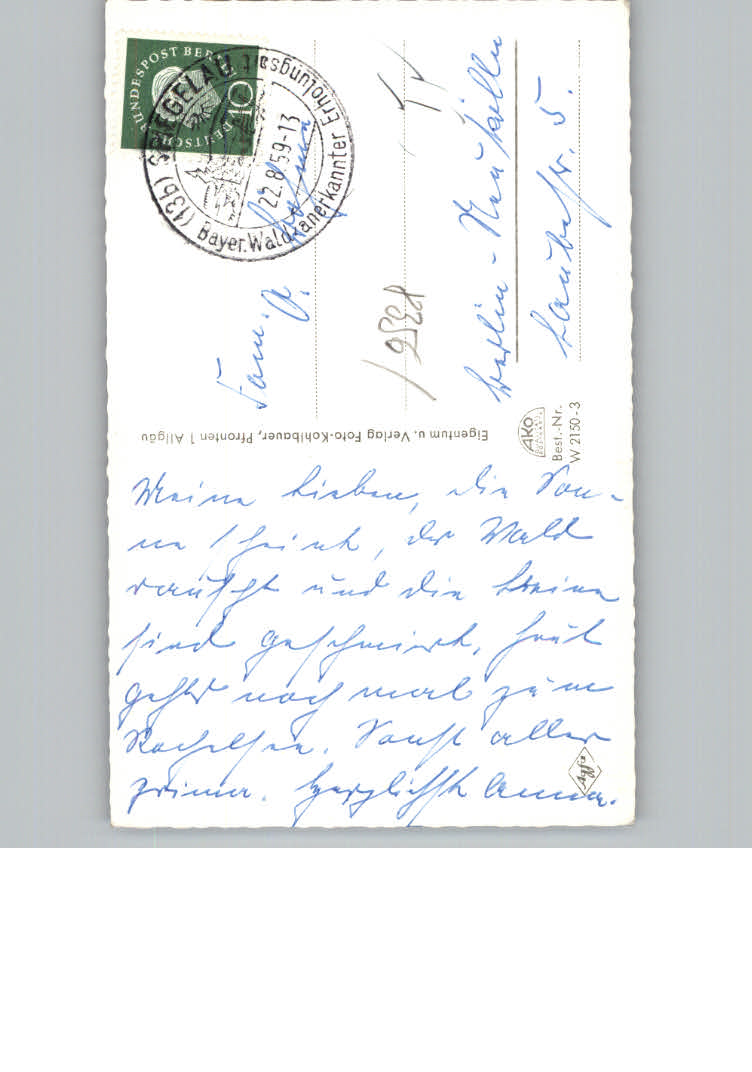 Meine Lieben, die Son-
ne scheint, der Wald
rauscht und die Beine
sind geschmiert, heut
geht's noch mal zum
Rachelsee. Sonst alles
prima. Herzlichst Anna.
Fam.
Berlin-Neukölln
5.
Eigentum u. Verlag Foto-Kohlbauer, Pfronten 1 Allgäu
AKO
Best.-Nr.
W 2150-3
Agfa
DEUTSCHE BUNDESPOST BERLIN
10
(13b) SPIEGELAU
Bayer. Wald anerkannter Erholungsort
22.8.59-13